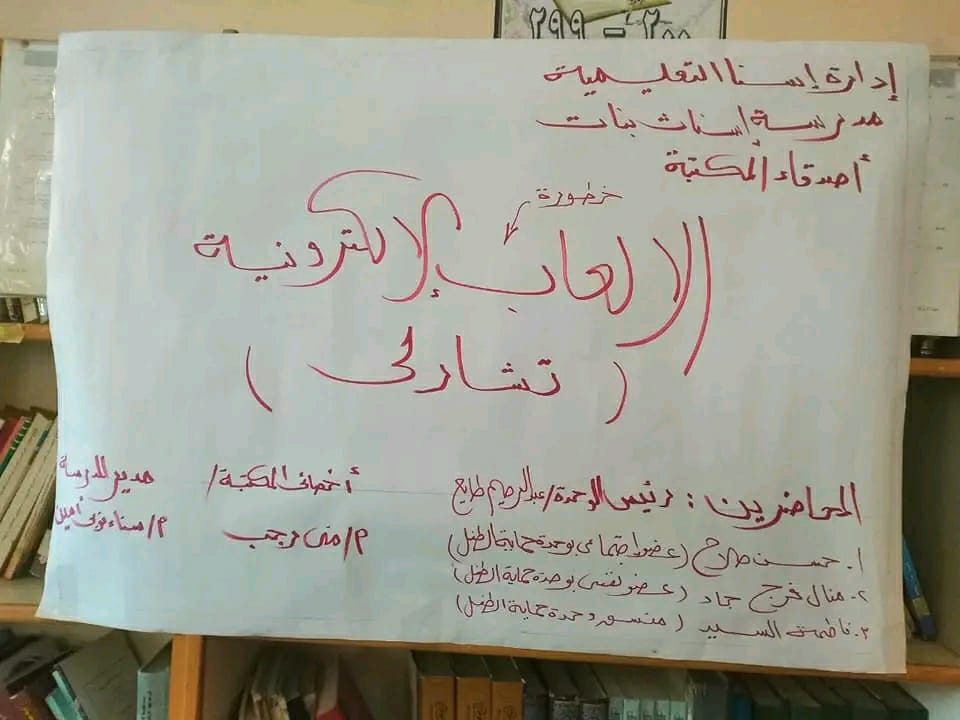 ٢٠٠ - ٢٩٩
إدارة إسنا التعليمية
مدرسة إسناث بنات
أصدقاء المكتبة
خطورة
الالعاب الإلكترونية
( تشارلى )
المحاضرين : رئيس الوحدة / عبدالرحيم طايع
١. حسن صلاح (عضو اجتماعى بوحدة حماية الطفل)
٢. منال فرج جاد (عضو نفسى بوحدة حماية الطفل)
٣. فاطمة السيد (منسق وحدة حماية الطفل)
أخصائى المكتبة /
م/ منى رجب
مدير المدرسة
م/ سناء فوزى أمين